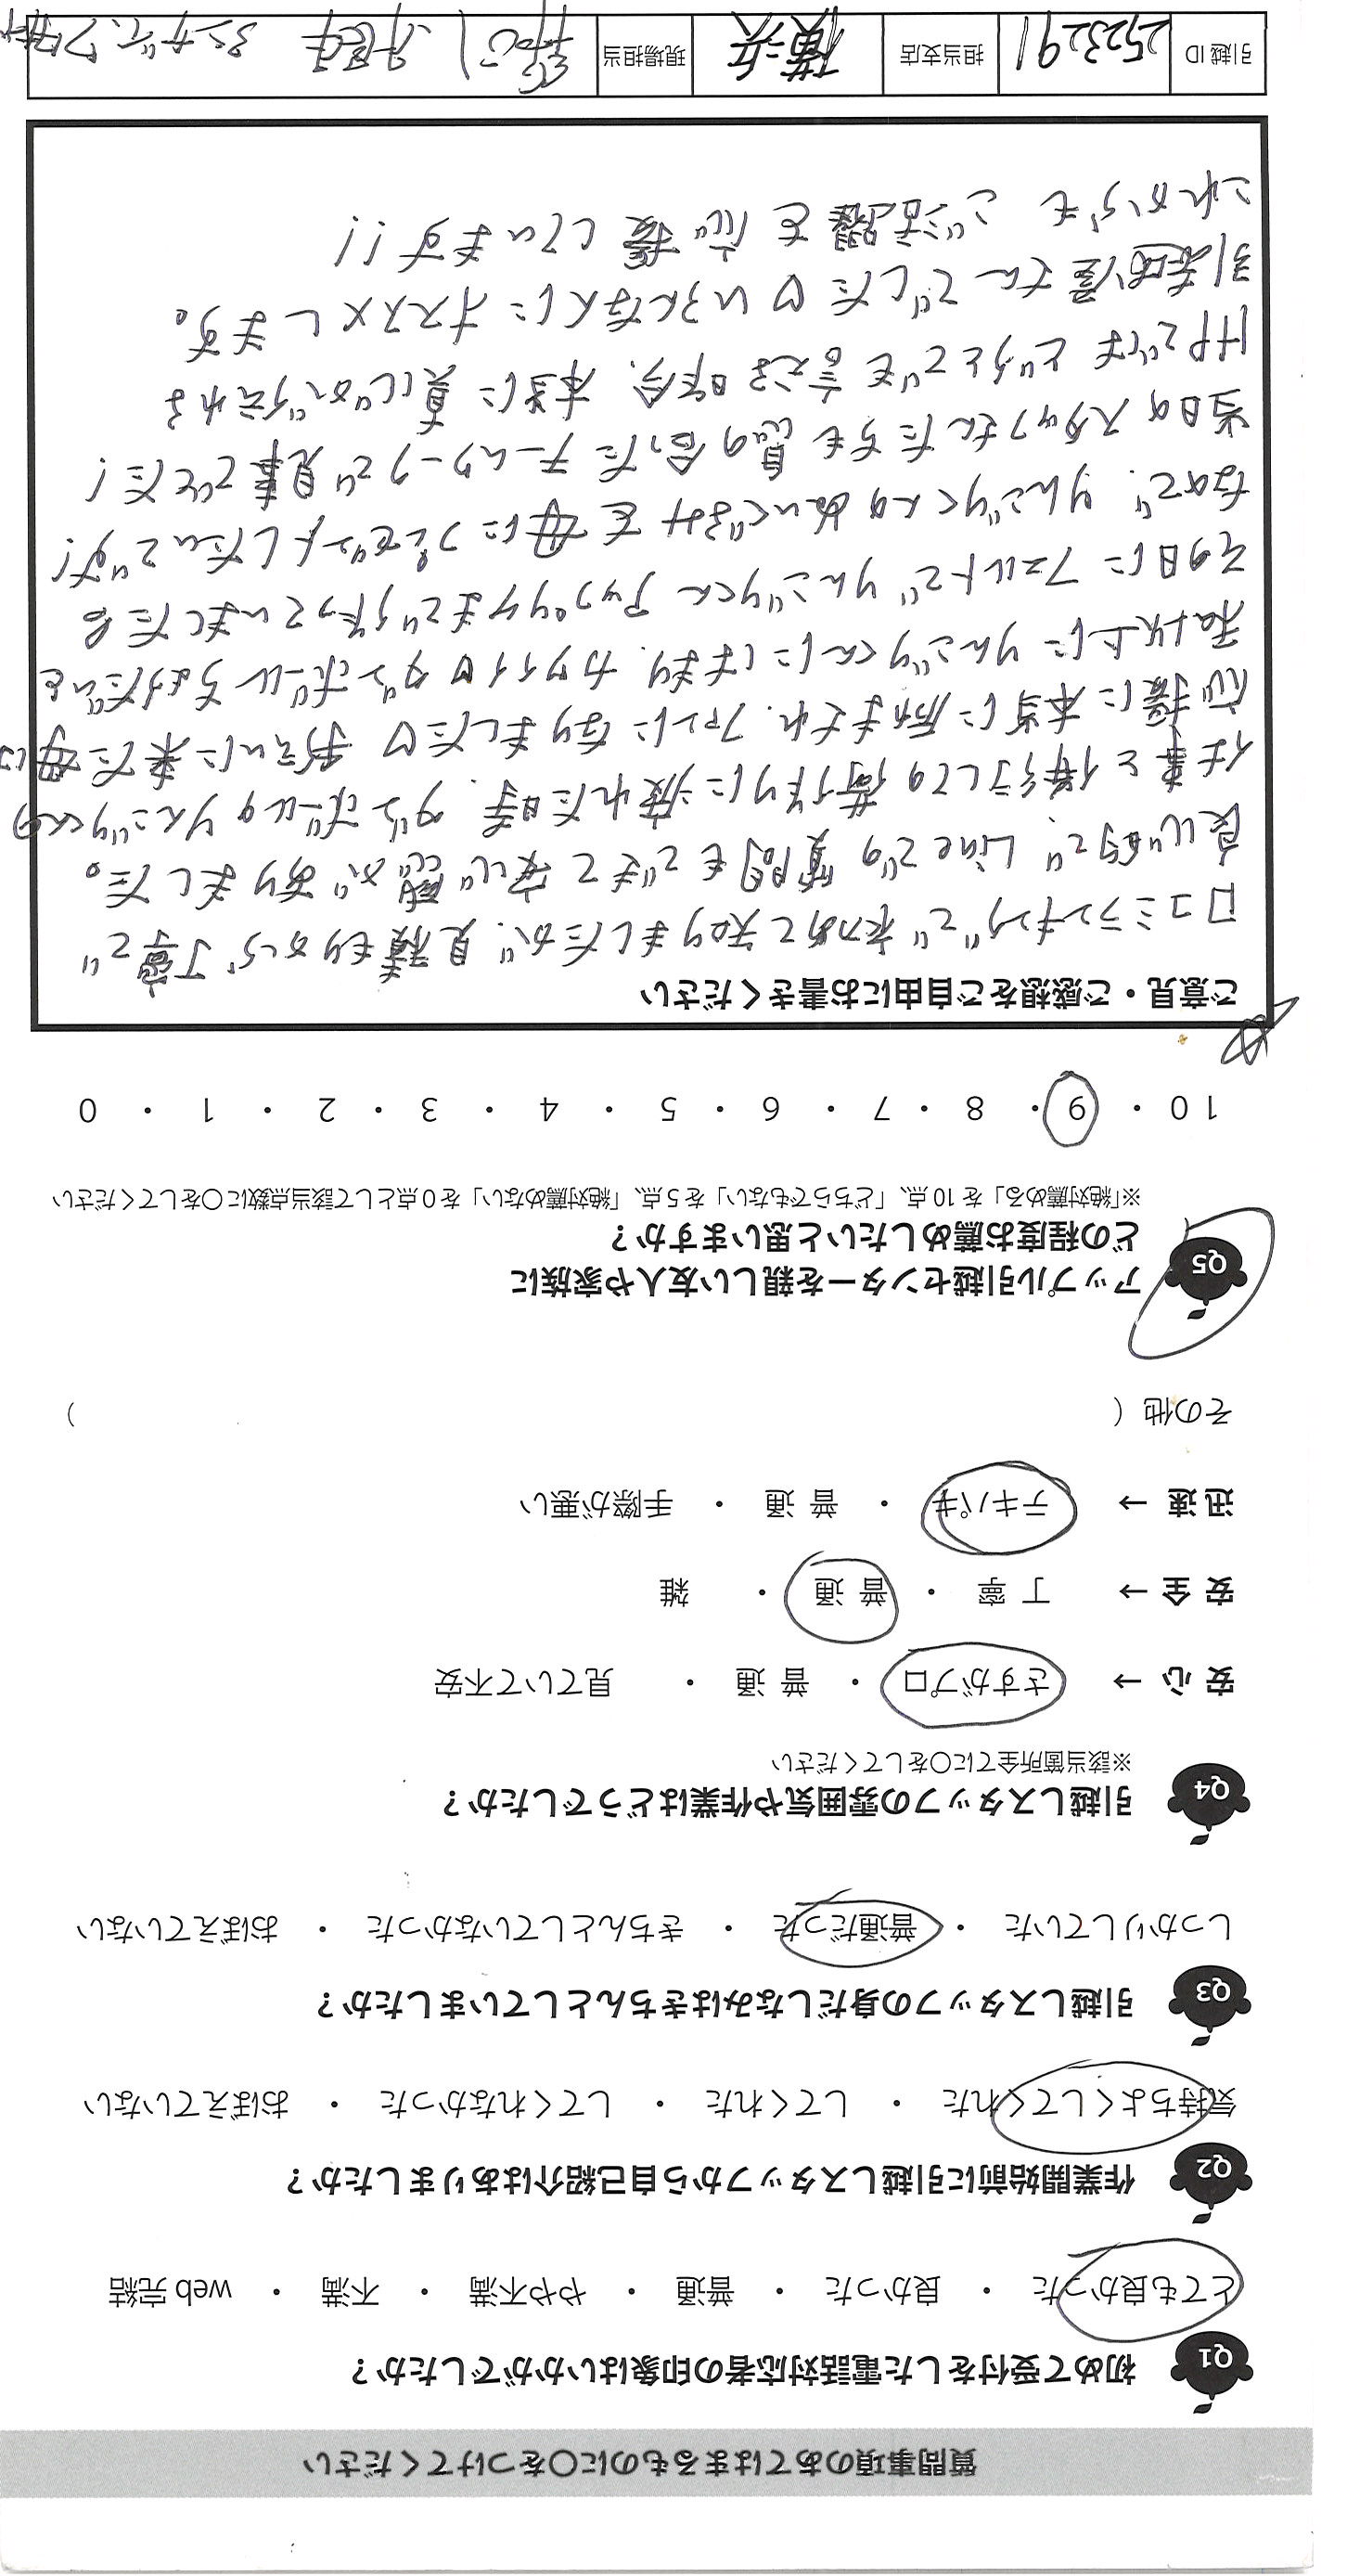 質問事項のあてはまるものに〇をつけてください
Q1 初めて受付をした電話対応者の印象はいかがでしたか？
とても良かった ・ 良かった ・ 普通 ・ やや不満 ・ 不満 ・ web 完結
Q2 作業開始前に引越しスタッフから自己紹介はありましたか？
気持ちよくしてくれた ・ してくれた ・ してくれなかった ・ おぼえていない
Q3 引越しスタッフの身だしなみはきちんとしていましたか？
しっかりしていた ・ 普通だった ・ きちんとしていなかった ・ おぼえていない
Q4 引越しスタッフの雰囲気や作業はどうでしたか？
※該当箇所全てに〇をしてください
安心 → さすがプロ ・ 普通 ・ 見ていて不安
安全 → 丁寧 ・ 普通 ・ 雑
迅速 → テキパキ ・ 普通 ・ 手際が悪い
その他 ( )
Q5 アップル引越センターを親しい友人や家族に
どの程度お薦めしたいと思いますか？
※「絶対薦める」を 10 点、「どちらでもない」を 5 点、「絶対薦めない」を 0 点として該当点数に〇をしてください
10 ・ 9 ・ 8 ・ 7 ・ 6 ・ 5 ・ 4 ・ 3 ・ 2 ・ 1 ・ 0
ご意見・ご感想をご自由にお書きください
口コミランキングで初めて知りましたが、見積もりから丁寧で
良い的で、Lineでの質問もできて安心感がありました。
仕事と併行しての荷作りに疲れた時、ダンボールのりんごりくんの
応援に本当に励まされ、ファンになりました♡ 手伝いに来た母は
私以上にりんごりくんにはまり、カワイイ♡ダンボールちょうだいと
その日にフェルトでりんごりくんアップリケまで作っていました
なので、りんごりくんのぬいぐるみを母にプレゼントしたいです！
当日のスタッフさんたちも息の合ったチームワークで見事でした！
HPではどうとでも言える昨今、本当に真心が伝わる
引越屋さんでした♡ いろんな人にオススメします。
これからもご活躍を応援しています！！
引越 ID 2523291 担当支店 横浜 現場担当